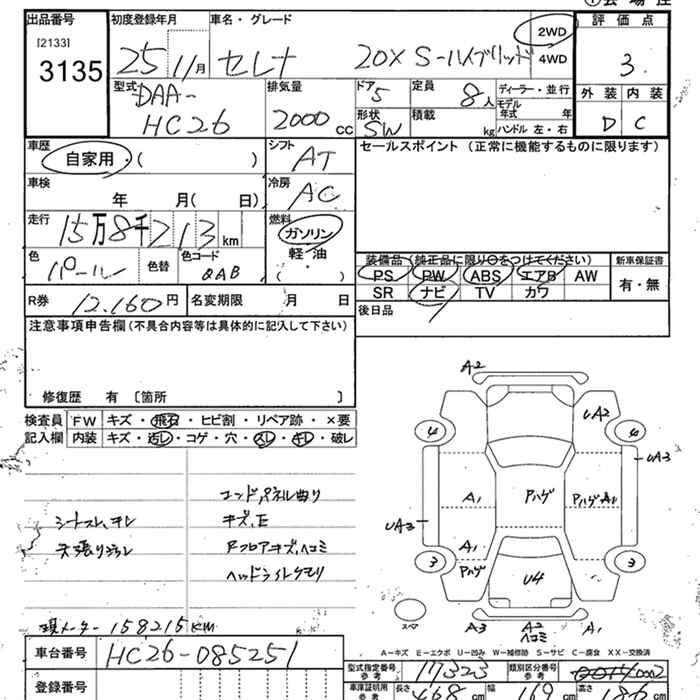 出品番号 初度登録年月 車名・グレード 評価点
[2133]
3135 25 11月 セレナ 20X S-ハイブリッド 2WD 4WD 3
型式 排気量 ドア 定員 ディーラー・並行 外装 内装
DAA-HC26 2000cc 5 8人 モデル年式 年 D C
形状 積載
SW kg ハンドル 左・右
車歴 シフト セールスポイント (正常に機能するものに限ります)
自家用・( ) AT
車検 冷房
年 月( 日) AC
走行 燃料
15万8千213km ガソリン
色 色替 色コード 軽・油
パール QAB ( )
装備品(純正品に限り○をつけてください) 新車保証書
PS PW ABS エアB AW 有・無
SR ナビ TV カワ
R券 12,160円 名変期限 月 日 後日品
注意事項申告欄(不具合内容等は具体的に記入して下さい)
修復歴 有 [箇所 ]
検査員 FW キズ・飛石・ヒビ割・リペア跡・×要
記入欄 内装 キズ・汚レ・コゲ・穴・スレ・キレ・破レ
コンド,パネル曲り
シートスレ,キレ キズ,E
天張り Fフロアキズ,ヘコミ
ヘッドライトクモリ
現メーター 158215KM
A2
UA2
4 4
UA3
A1 Pハゲ Pハゲ A1
UA3
A1
3 Pハゲ 3
U4
スペア A3 A2 ヘコミ UA3
A-キズ E-エクボ U-凹み W-補修跡 S-サビ C-腐食 XX-交換済
車台番号 HC26-085251
型式指定番号 参考 17323 類別区分番号 参考 0002
登録番号
車庫証明用 参考 長さ 468cm 幅 169cm 高さ 186cm